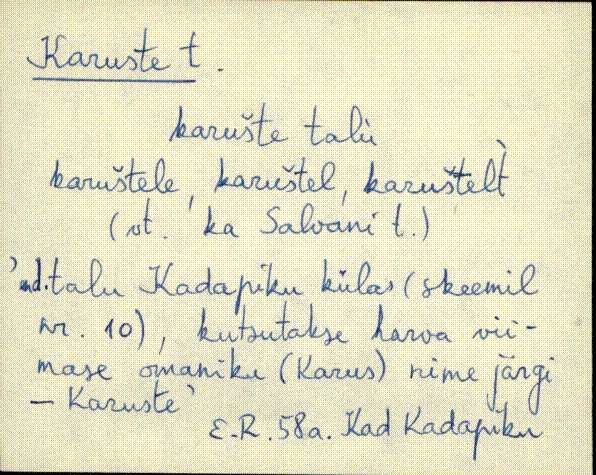 Karuste t.
karušte talù
karuštele, karuštel, karuštel̀t
(vt. ka Salvani t.)
'end. talu Kadapiku külas (skeemil
nr. 10), kutsutakse harva vii-
mase omaniku (Karus) nime järgi
– Karuste'
E.R. 58a. Kad Kadapiku